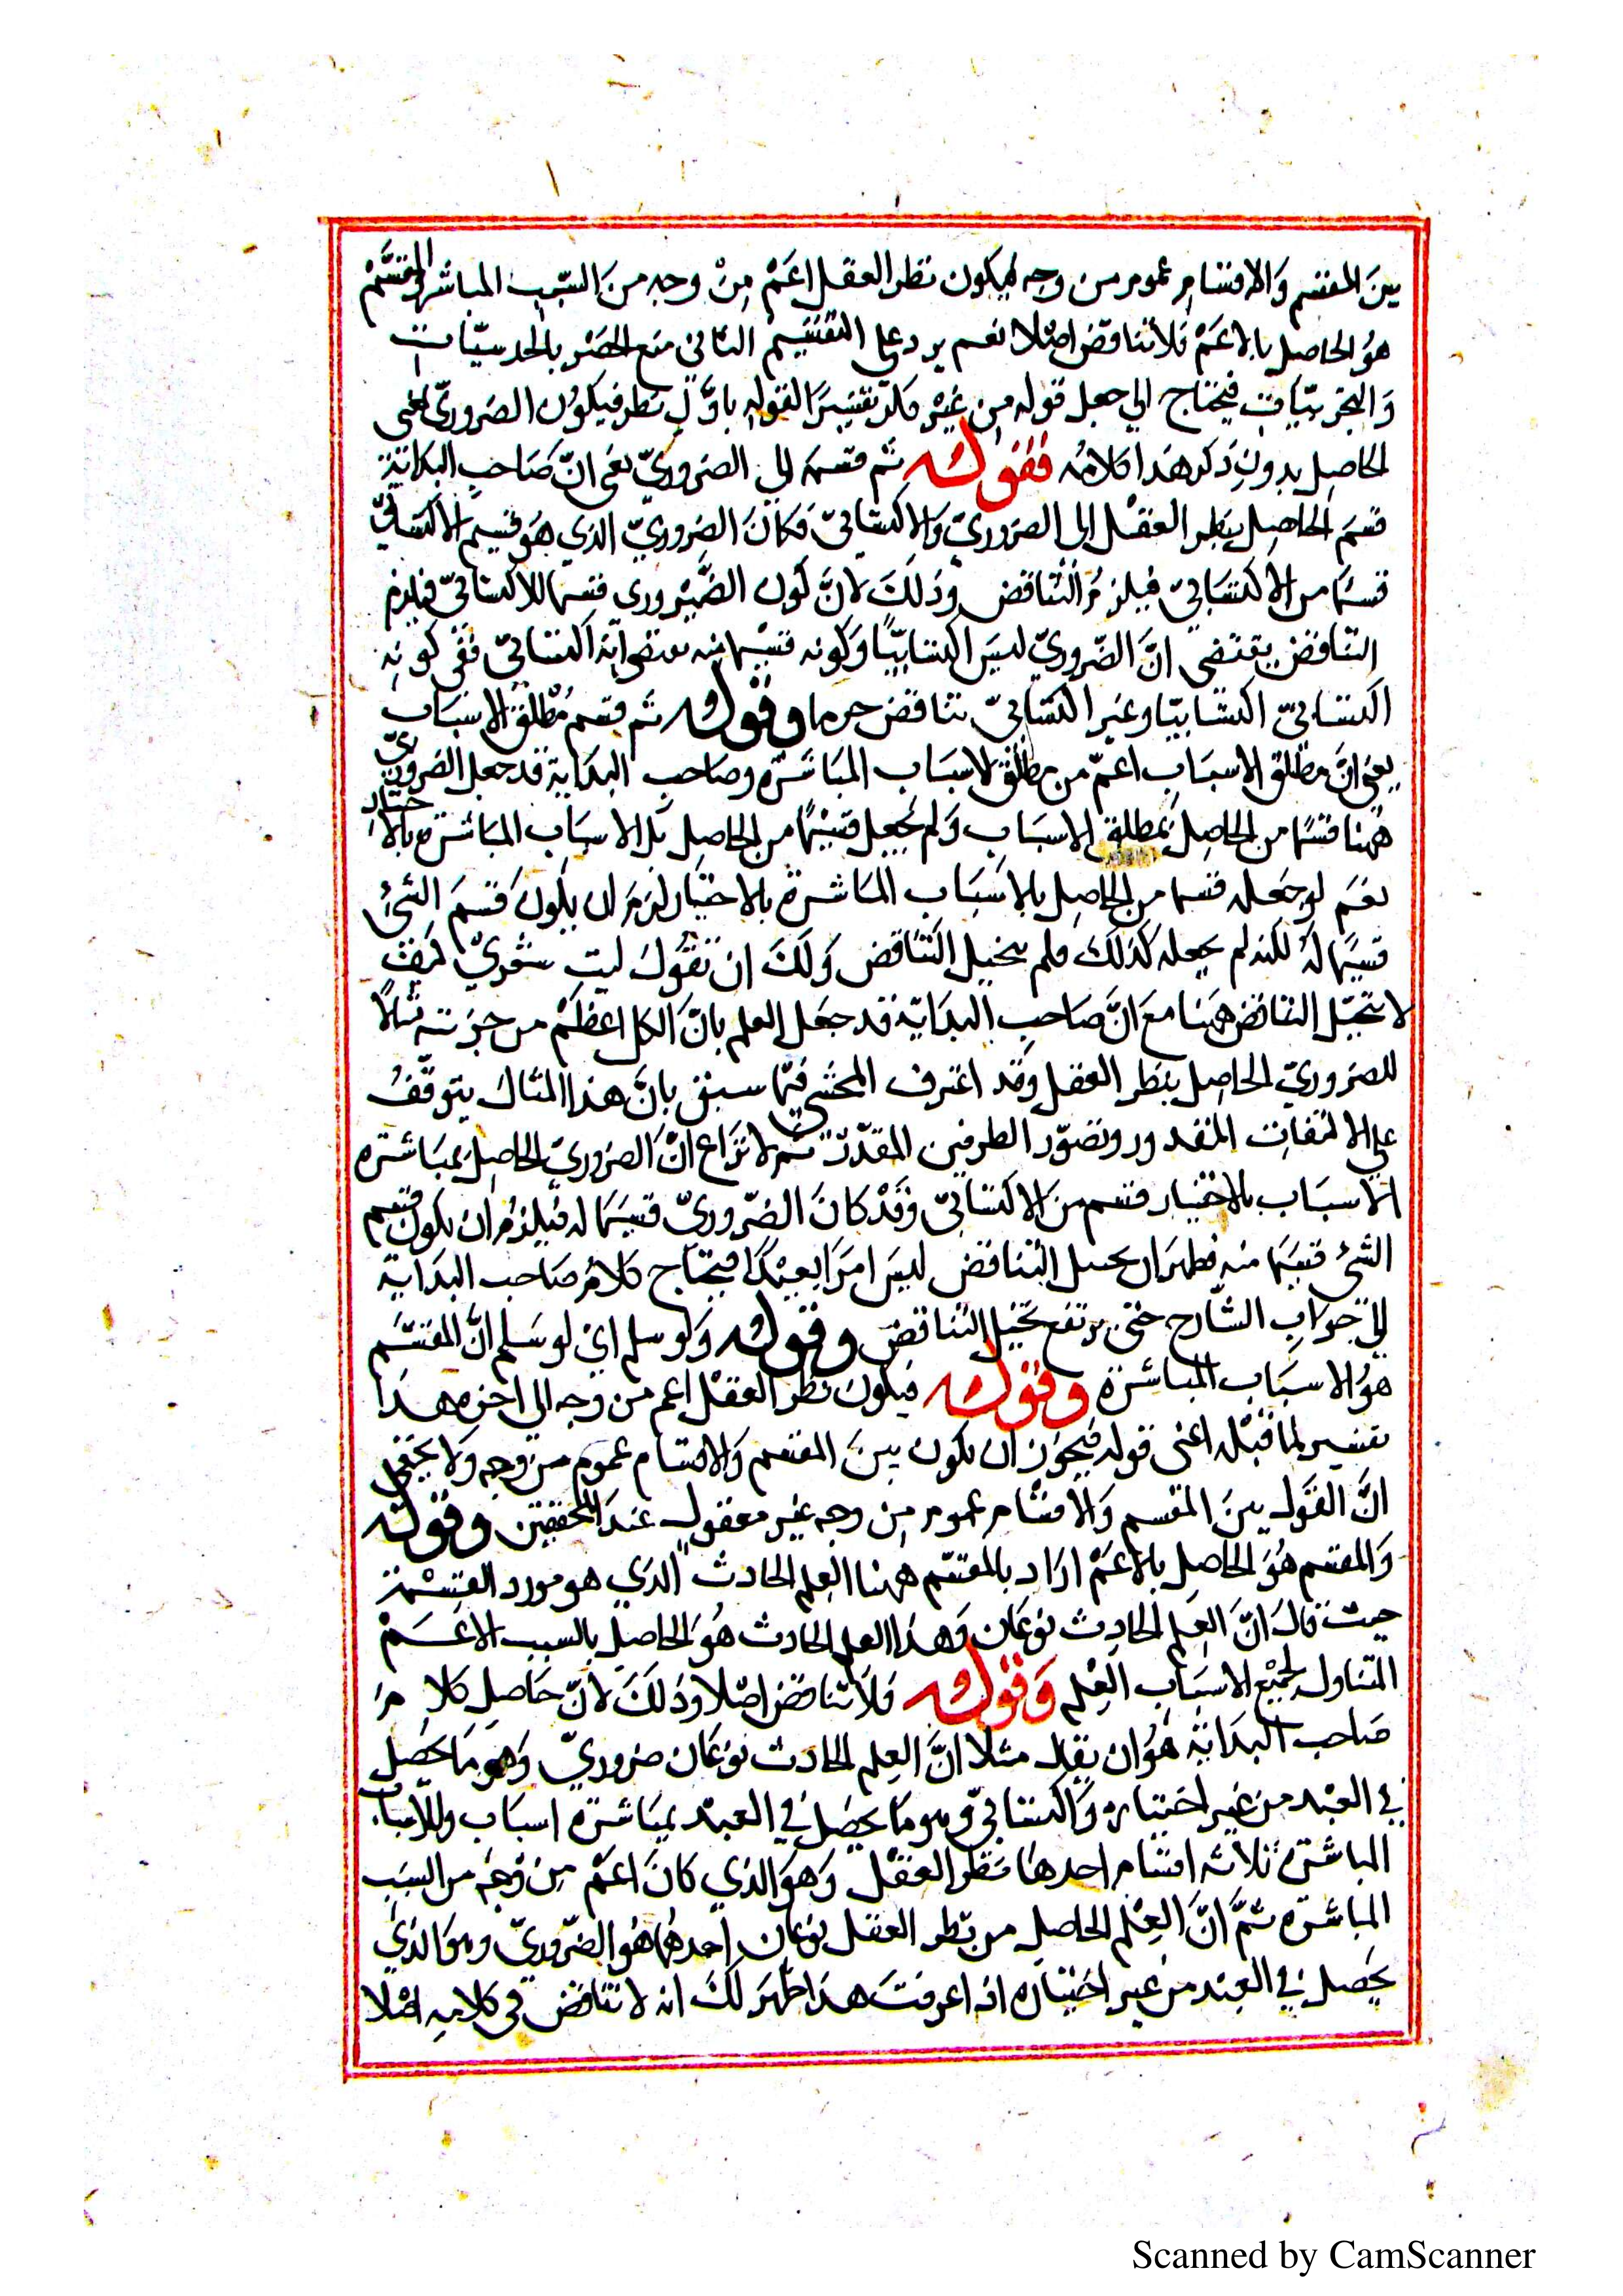 بين المقسم والاقسام عموم من وجه ليكون نظر العقل اعم من وجه من السبب المباشر والمقسم
هو الحاصل بالاعم فلا تناقض اصلا نعم يرد على التقسيم الثانى منع الحصر بالحدسيات
والتجربيات فيحتاج الي جعل قوله من غير فكر تفسيرا لقوله باول نظر فيكون الضرورى
الحاصل بدون ذكر هذا كلامه فقوله ثم قسمه الى الضروري يعنى ان صاحب البداية
قسم الحاصل بنظر العقل الى الضروري والاكتسابي فكان الضروري الذي هو قسيم الاكتسابي
قسما من الاكتسابي فيلزم التناقض وذلك لان كون الضرورى قسيما للاكتسابي فيلزم
التناقض يقتضى ان الضروري ليس اكتسابيا وكونه قسما منه يقتضى انه اكتسابي ففى كونه
اكتسابيا وغير اكتسابي تناقض وقوله ثم قسم مطلق الاسباب
يعنى ان مطلق الاسباب اعم من مطلق الاسباب المباشرة وصاحب البداية قد جعل الضروري
ههنا قسما من الحاصل بمطلق الاسباب ولم يجعل قسما من الحاصل بالاسباب المباشرة بالاختيار
نعم لو جعله قسما من الحاصل بالاسباب المباشرة بالاختيار لزم ان يكون قسم الشئ
قسيما له لكنه لم يجعله كذلك فلم يتخيل التناقض ولك ان تقول ليت شعري كيف
لا يتخيل التناقض ههنا مع ان صاحب البداية قد جعل العلم بان الكل اعظم من جزئه مثالا
للضروري الحاصل بنظر العقل وقد اعترف المحشي فيما سبق بان هذا المثال يتوقف
على الالتفات المقدور وتصور الطرفين المقدر ثم لا نزاع ان الضروري الحاصل بمباشرة
الاسباب بالاختيار قسم من الاكتسابي وقد كان الضروري قسيما له فيلزم ان يكون قسيم
الشئ قسما منه فظهر ان تخيل التناقض ليس امرا بعيدا فيحتاج كلام صاحب البداية
الى جواب الشارح حتى يرتفع تخيل التناقض وقوله ولو سلم اي لو سلم ان المقسم
هو الاسباب المباشرة وقوله فيكون نظر العقل اعم من وجه الى اخره هذا
تفسير لما قبله اعنى قوله فيجوز ان يكون بين المقسم والاقسام عموم من وجه ولا يخفى
ان القول بين المقسم والاقسام عموم من وجه غير معقول عند المحققين وقوله
والمقسم هو الحاصل بالاعم اراد بالمقسم ههنا العلم الحادث الذي هو مورد القسمة
حيث قال ان العلم الحادث نوعان وهذا العلم الحادث هو الحاصل بالسبب الاعم
المتناول لجميع الاسباب العلم وقوله فلا تناقض اصلا وذلك لان حاصل كلام
صاحب البداية هو ان يقال مثلا ان العلم الحادث نوعان ضروري وهو ما يحصل
في العبد من غير اختياره واكتسابي وهو ما يحصل في العبد بمباشرة اسباب وللاسباب
المباشرة ثلاثة اقسام احدها نظر العقل وهو الذي كان اعم من وجه من السبب
المباشرة ثم ان العلم الحاصل من نظر العقل نوعان احدهما هو الضروري وهو الذي
يحصل في العبد من غير اختياره اذا عرفت هذا ظهر لك انه لا تناقض فى كلامه اصلا
Scanned by CamScanner